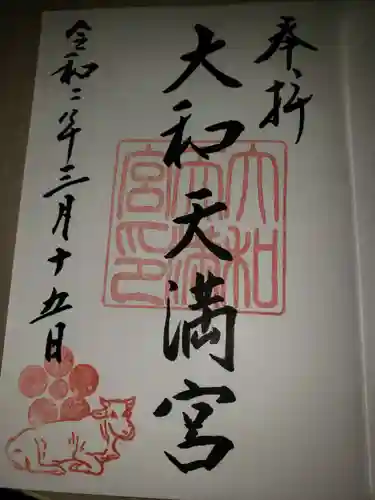 奉拝
大和天満宮
令和二年三月十五日
大和
天満
宮印